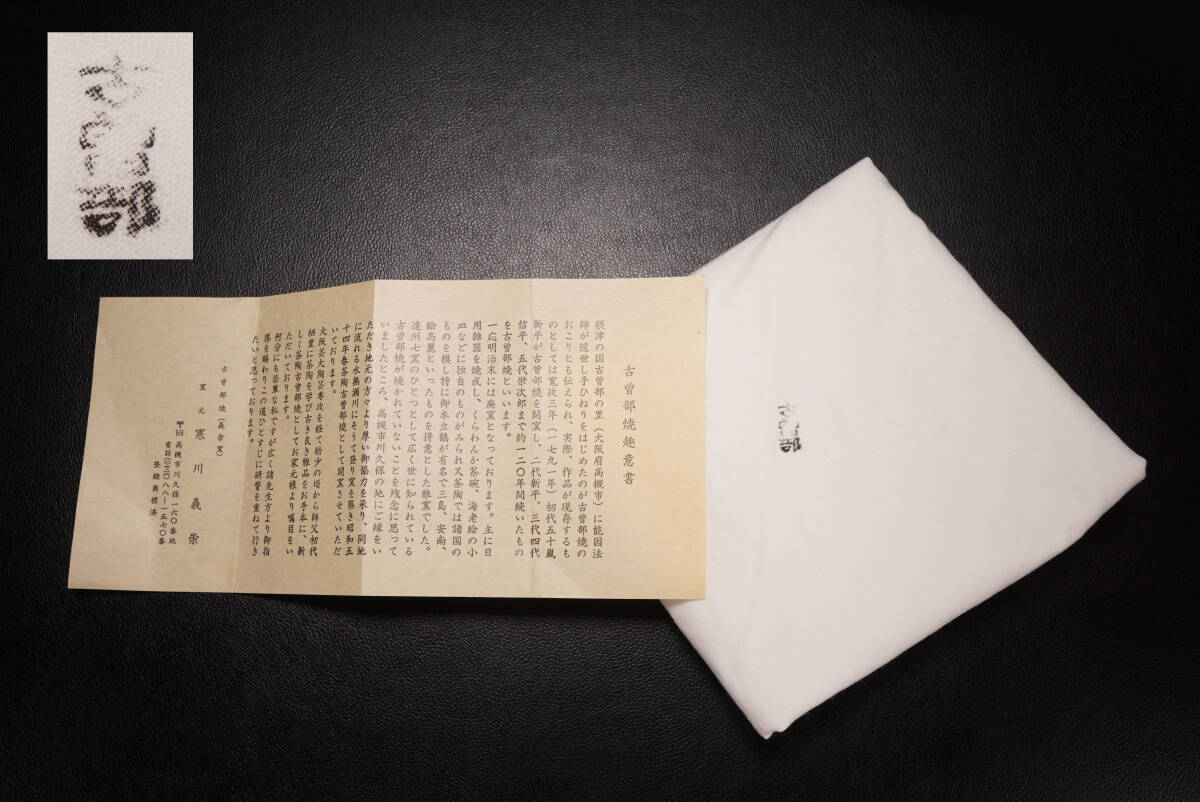 古曽部
古曽部焼趣意書
摂津の国古曽部の里(大阪府高槻市)に能因法
師が隠世し手ひねりをはじめたのが古曽部焼の
おこりとも伝えられ、実際、作品が現存するも
のとしては寛政三年(一七九一年)初代五十嵐
新平が古曽部焼を開窯し、二代新平、三代四代
信平、五代栄次郎まで約一二〇年間続いたもの
を古曽部焼といいます。
一応明治末には廃窯となっております。主に日
用雑器を焼成し、くらわんか茶碗、海老絵の小
皿などに独自のものがみられ又茶陶では諸国の
ものを模し特に御本立鶴が有名で三島、安南、
絵高麗といったものを得意とした雅窯でした。
遠州七窯のひとつとして広く世に知られている
古曽部焼が焼かれていないことを残念に思って
いましたところ、高槻市川久保の地にご縁をい
ただき地元の方々より厚い御協力を承り、同地
に流れる水無瀬川にそうて登り窯を築き昭和五
十四年春茶陶古曽部焼として開窯させていただ
いております。
大阪芸大陶芸専攻を経て幼少の頃から師父初代
栖豊に茶陶を学び古き良き雅品をお手本に、新
しく茶陶古曽部焼としてお家元様より嘱目をい
ただいております。
何分にも若輩な私ですが広く諸先生方より御指
導を賜わりこの道ひとすじに研賛を重ねて行き
たいと思っております。
古曽部焼(義崇窯)
窯元 寒川義崇
高槻市川久保一六〇番地
八八ー一五七〇番
登録商標済
古曽部